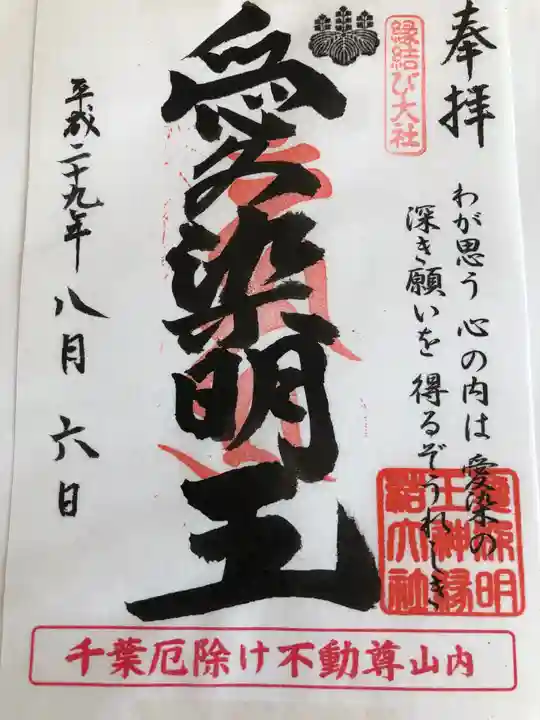 奉拝
縁結び大社
わが思う 心の内は 愛染の
深き願いを 得るぞうれしき
愛染明王
平成二十九年 八月 六日
千葉厄除け不動尊山内